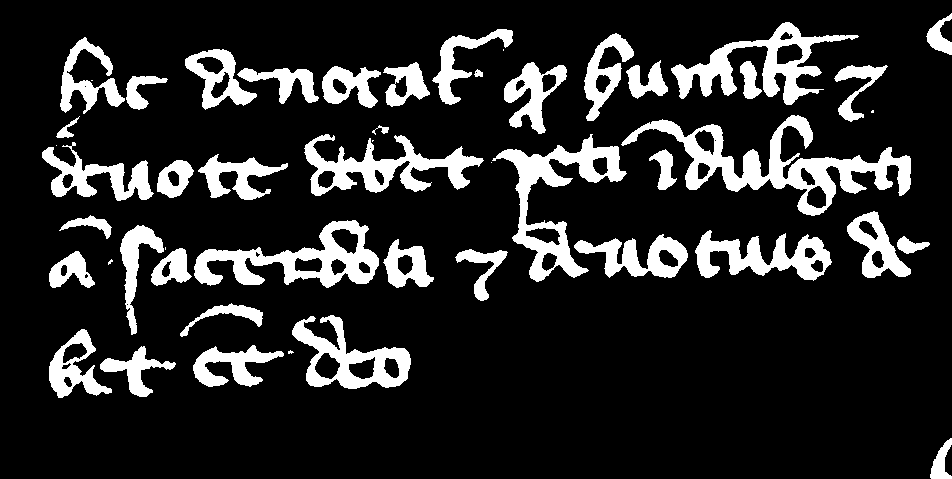 hic denotat᷑ ꝙ humilit̅ ⁊
deuote debet peti ı̅dulgeti
a̅ sacerdoti ⁊ deuotius de
bet ee̅ deo